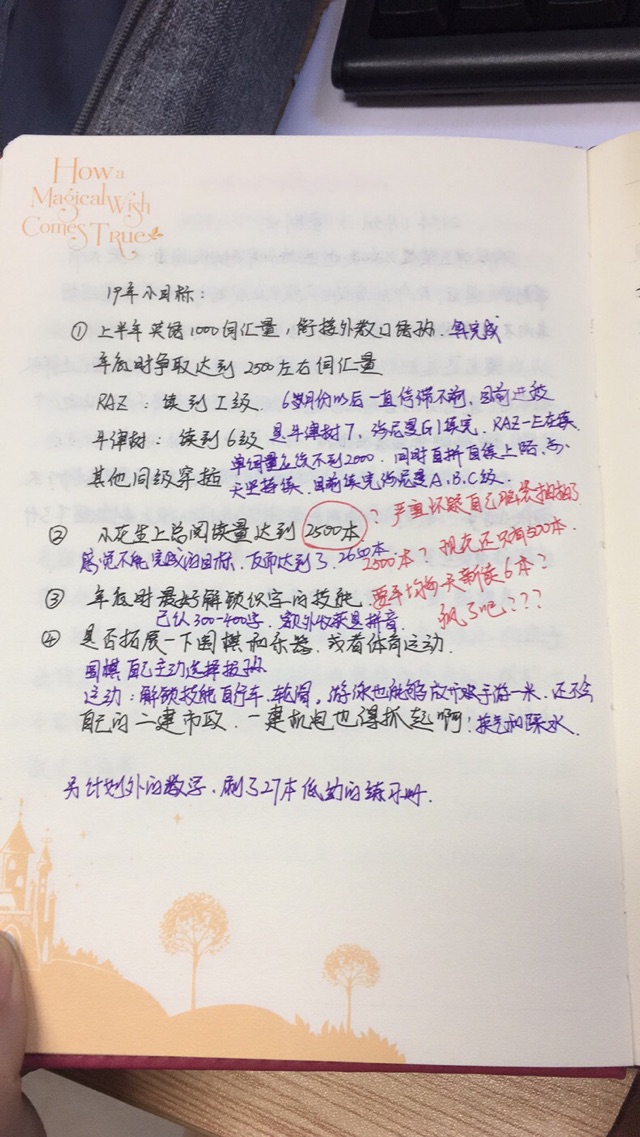 How a
Magical Wish
Comes True
19年小目标：
① 上半年英语1000词汇量，衔接外教口语班. 算完成
年底时争取达到2500左右词汇量
RAZ：读到I级. 6岁月份以后一直停滞不前，目前进效
牛津树：读到6级 是牛津树7，尚尼是G1读完，RAZ一上在读
其他同级穿插 单词量应该不到2000. 同时自拼直读上路，
天坚持读. 目前读完尚尼是A、B、C级.
② 小花生上总阅读量达到2500本 ？严重怀疑自己脑袋抽抽了
感觉不能完成的目标，反而达到了，2600本 2500本？现在还只有500本.
③ 年底时最好解锁识字的技能 要平均每天新读6本？
已认300-400字，额外收获是拼音. 疯了吧？？？
④ 是否拓展一下围棋和乐器，或者体育运动.
围棋自己主动选择报班
运动：解锁技能自行车、轮滑，游泳也能够放市双手游一米，还不会
自己的二建市政，一建机电也得抓起啊！换气和踩水.
另计划外的数学，刷了27本低幼的练习册.